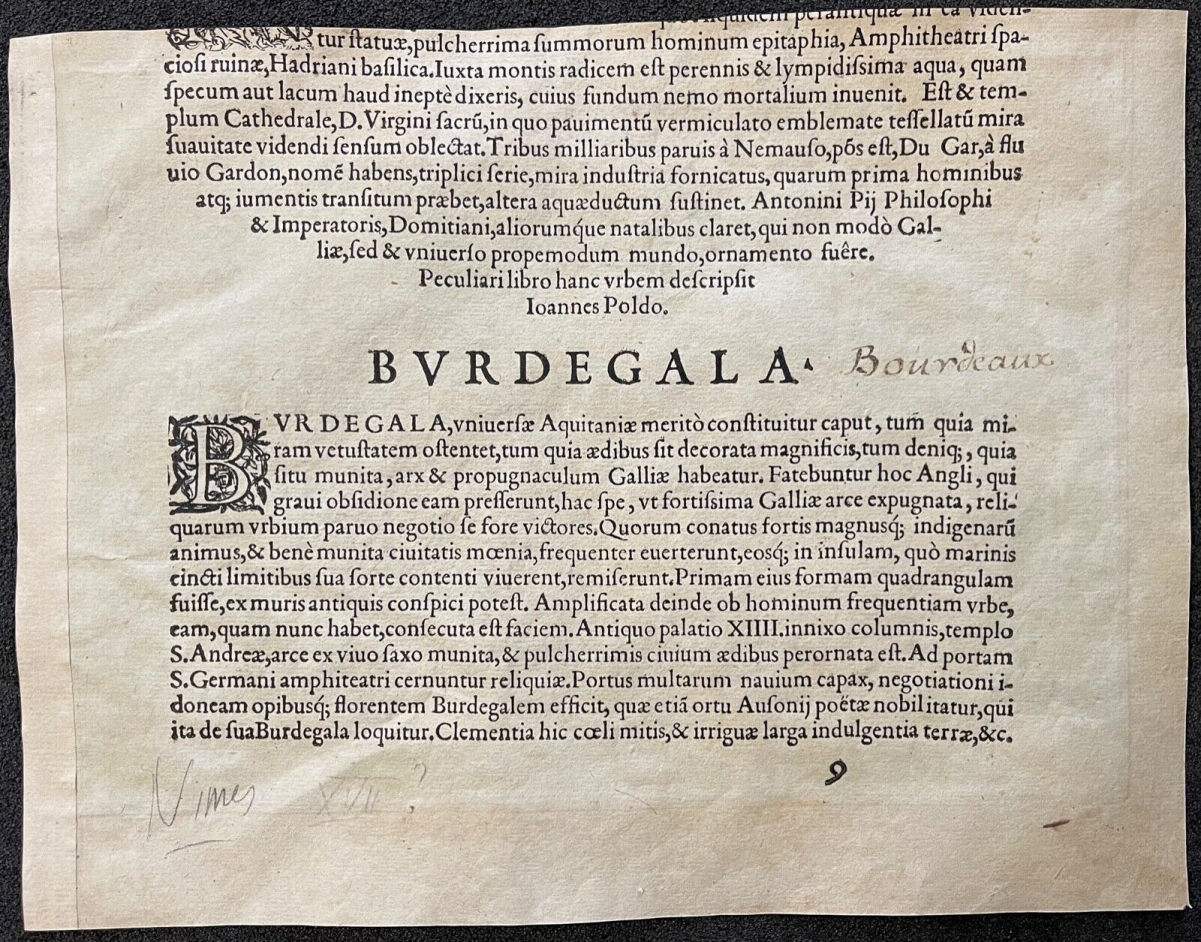 perantiquæ in ea viden-
tur ſtatuæ,pulcherrima ſummorum hominum epitaphia, Amphitheatri ſpa-
cioſi ruinæ,Hadriani baſilica.Iuxta montis radicem eſt perennis & lympidiſsima aqua, quam
ſpecum aut lacum haud ineptè dixeris, cuius fundum nemo mortalium inuenit. Eſt & tem-
plum Cathedrale,D.Virgini ſacrũ,in quo pauimentũ vermiculato emblemate teſſellatũ mira
ſuauitate videndi ſenſum oblectat.Tribus milliaribus paruis à Nemauſo,põs eſt,Du Gar,à flu
uio Gardon,nomẽ habens,triplici ſerie,mira induſtria fornicatus,quarum prima hominibus
atq; iumentis tranſitum præbet,altera aquæductum ſuſtinet. Antonini Pij Philoſophi
& Imperatoris,Domitiani,aliorumq́ue natalibus claret,qui non modò Gal-
liæ,ſed & vniuerſo propemodum mundo,ornamento fuêre.
Peculiari libro hanc vrbem deſcripſit
Ioannes Poldo.
BVRDEGALA. Bourdeaux
BVRDEGALA,vniuerſæ Aquitaniæ meritò conſtituitur caput, tum quia mi-
ram vetuſtatem oſtentet,tum quia ædibus ſit decorata magnificis,tum deniq;, quia
ſitu munita, arx & propugnaculum Galliæ habeatur. Fatebuntur hoc Angli, qui
graui obſidione eam preſſerunt,hac ſpe, vt fortiſsima Galliæ arce expugnata, reli-
quarum vrbium paruo negotio ſe fore victores.Quorum conatus fortis magnusq́; indigenarũ
animus,& benè munita ciuitatis mœnia,frequenter euerterunt,eosq́; in inſulam, quò marinis
cincti limitibus ſua ſorte contenti viuerent,remiſerunt.Primam eius formam quadrangulam
fuiſſe,ex muris antiquis conſpici poteſt. Amplificata deinde ob hominum frequentiam vrbe,
eam,quam nunc habet,conſecuta eſt faciem.Antiquo palatio XIIII.innixo columnis,templo
S.Andreæ,arce ex viuo ſaxo munita,& pulcherrimis ciuium ædibus perornata eſt.Ad portam
S.Germani amphiteatri cernuntur reliquiæ.Portus multarum nauium capax, negotiationi i-
doneam opibusq́; florentem Burdegalem efficit, quæ etiã ortu Auſonij poëtæ nobilitatur,qui
ita de ſuaBurdegala loquitur.Clementia hic cœli mitis,& irriguæ larga indulgentia terræ,&c.
9
Nimes XVII ?